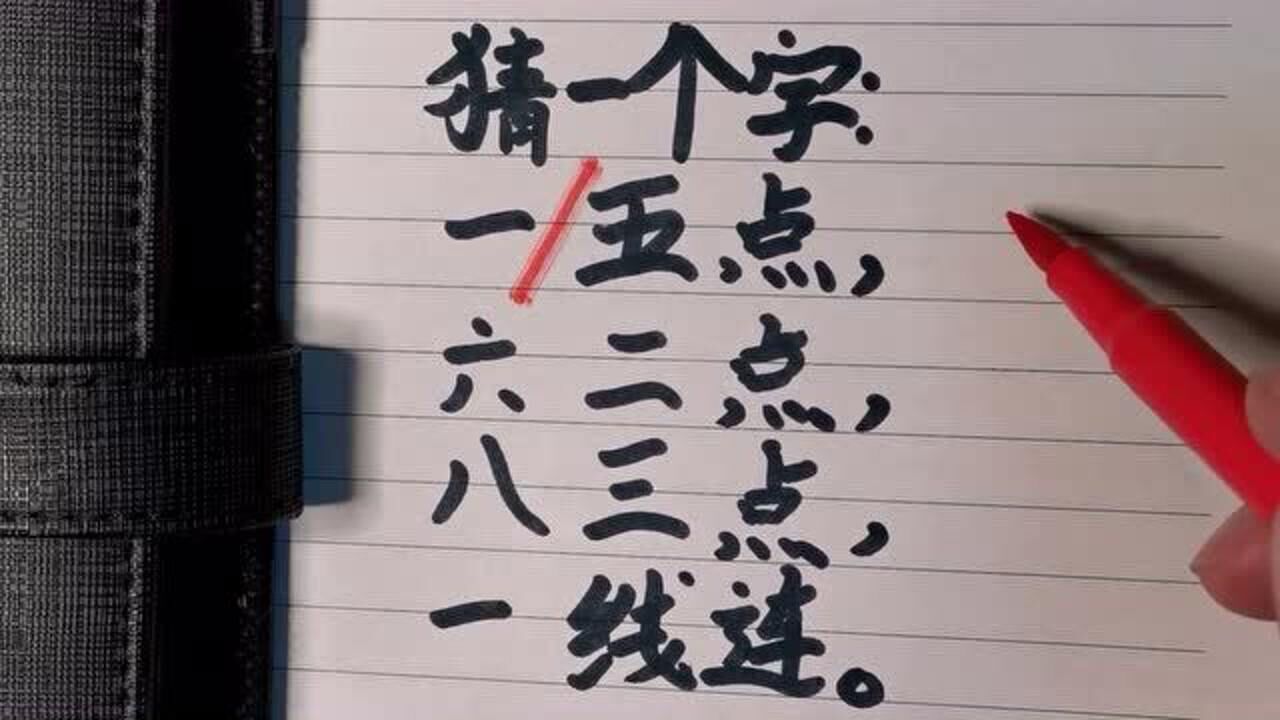 猜一个字:
一/五点,
六二点,
八三点,
一线连。